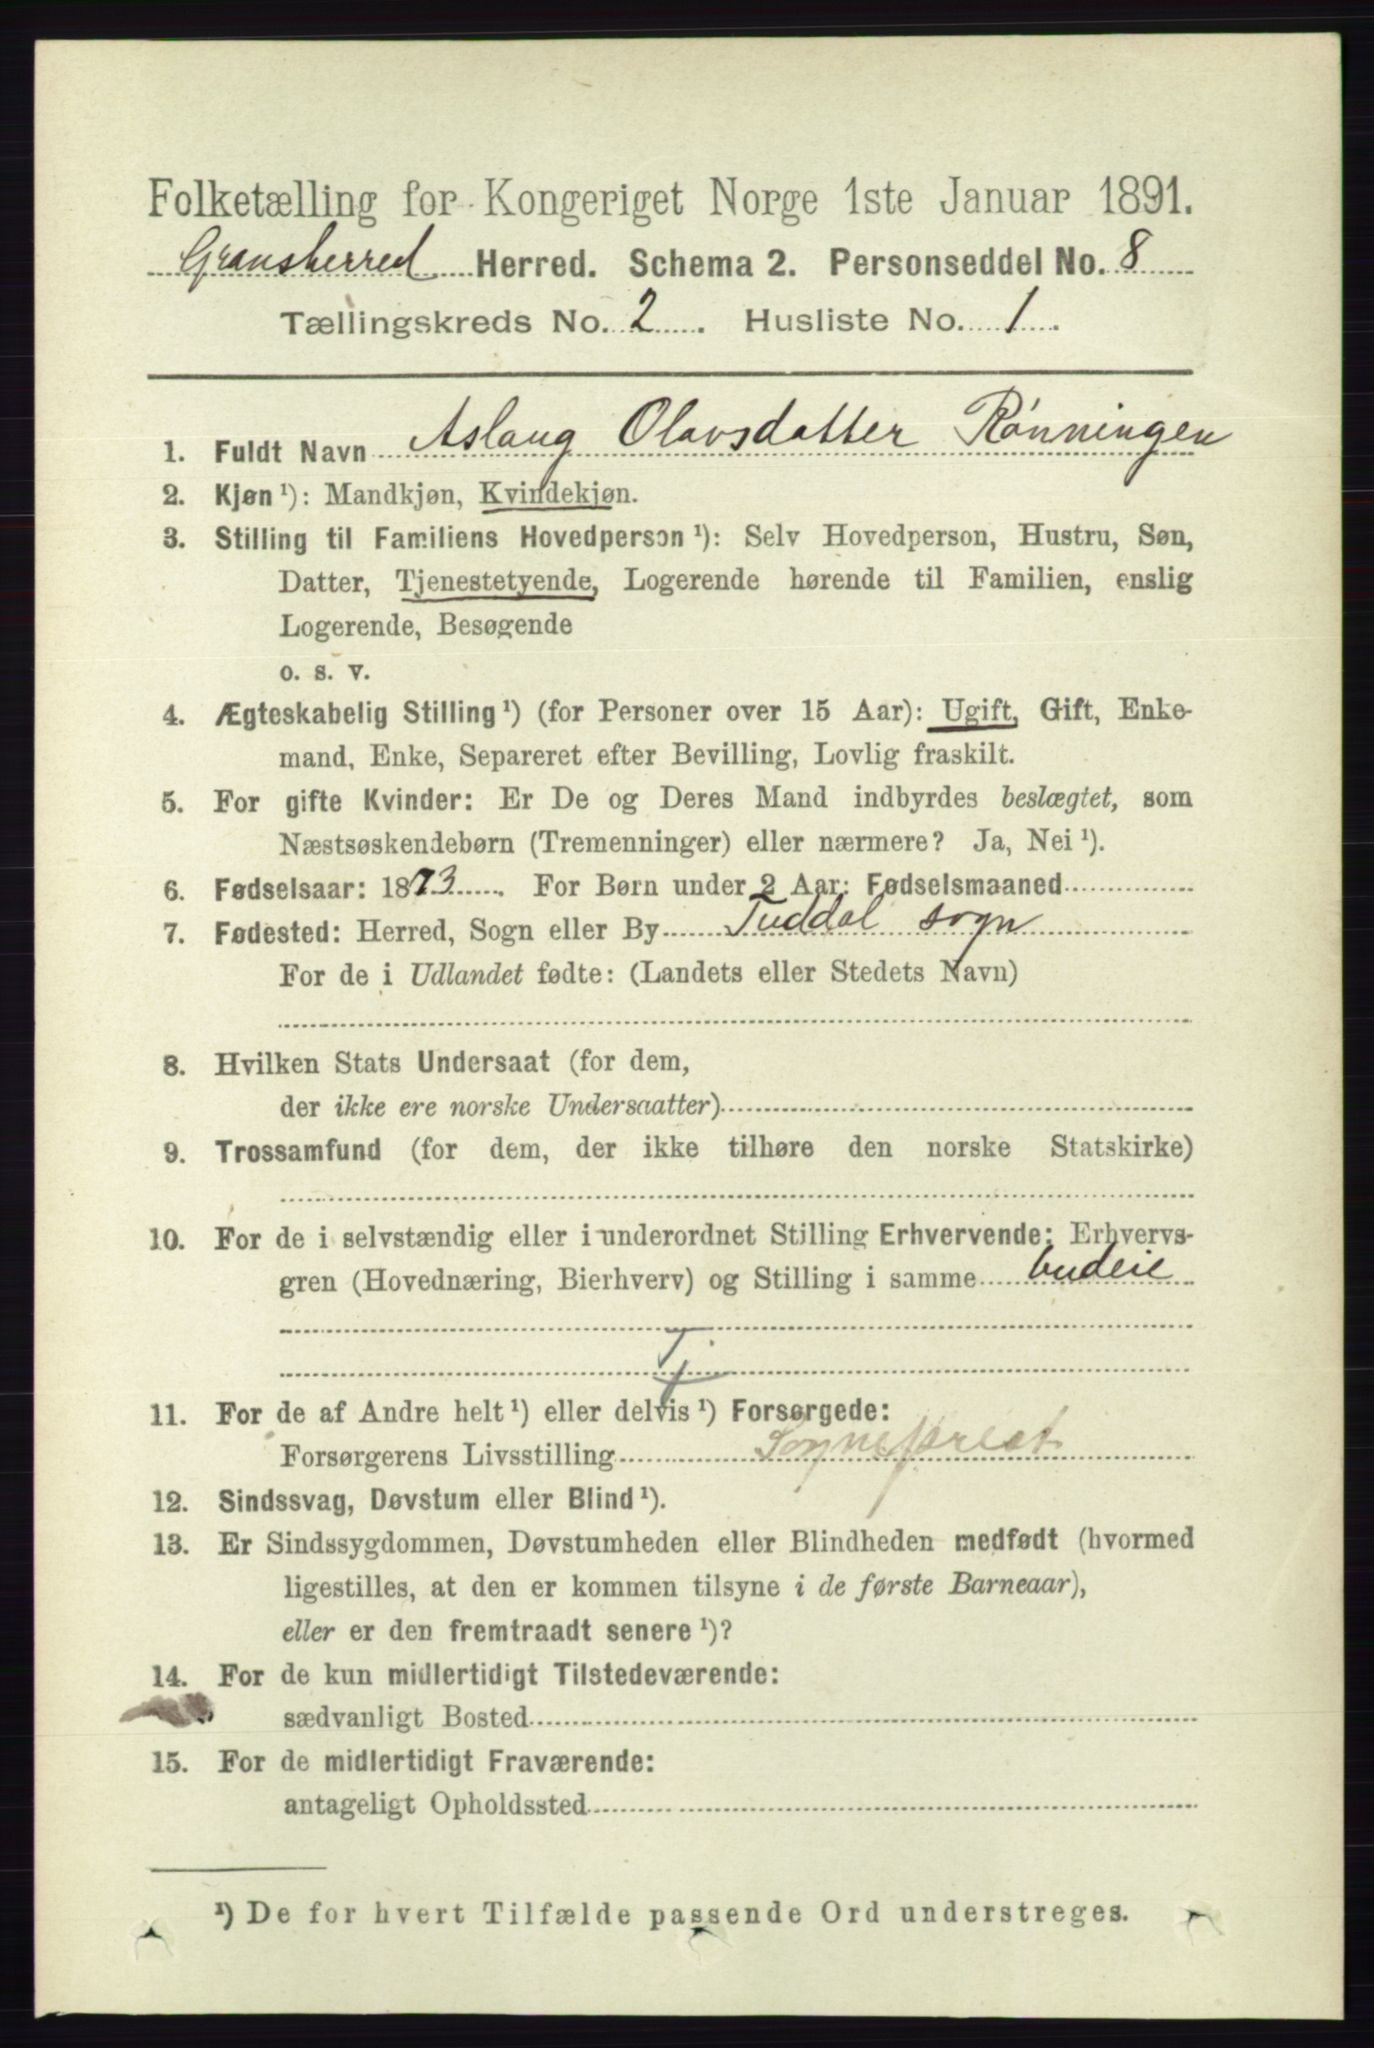 Folketælling for Kongeriget Norge 1ste Januar 1891.
Gransherred Herred. Schema 2. Personseddel No. 8
Tællingskreds No. 2. Husliste No. 1.
1. Fuldt Navn Aslaug Olavsdatter Rønningen
2. Kjøn ¹): Mandkjøn, Kvindekjøn.
3. Stilling til Familiens Hovedperson ¹): Selv Hovedperson, Hustru, Søn,
Datter, Tjenestetyende, Logerende hørende til Familien, enslig
Logerende, Besøgende
o. s. v.
4. Ægteskabelig Stilling ¹) (for Personer over 15 Aar): Ugift, Gift, Enke-
mand, Enke, Separeret efter Bevilling, Lovlig fraskilt.
5. For gifte Kvinder: Er De og Deres Mand indbyrdes beslægtet, som
Næstsøskendebørn (Tremenninger) eller nærmere? Ja, Nei ¹).
6. Fødselsaar: 1873. For Børn under 2 Aar: Fødselsmaaned
7. Fødested: Herred, Sogn eller By Tuddal sogn
For de i Udlandet fødte: (Landets eller Stedets Navn)
8. Hvilken Stats Undersaat (for dem,
der ikke ere norske Undersaatter)
9. Trossamfund (for dem, der ikke tilhøre den norske Statskirke)
10. For de i selvstændig eller i underordnet Stilling Erhvervende: Erhvervs-
gren (Hovednæring, Bierhverv) og Stilling i samme budeie
Tj
11. For de af Andre helt ¹) eller delvis ¹) Forsørgede:
Forsørgerens Livsstilling Sogneprest
12. Sindssvag, Døvstum eller Blind ¹).
13. Er Sindssygdommen, Døvstumheden eller Blindheden medfødt (hvormed
ligestilles, at den er kommen tilsyne i de første Barneaar),
eller er den fremtraadt senere ¹)?
14. For de kun midlertidigt Tilstedeværende:
sædvanligt Bosted
15. For de midlertidigt Fraværende:
antageligt Opholdssted
¹) De for hvert Tilfælde passende Ord understreges.